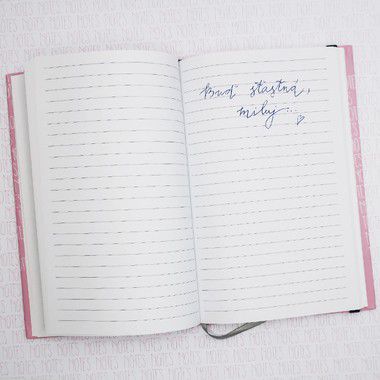 Buď šťastná,
miluj...